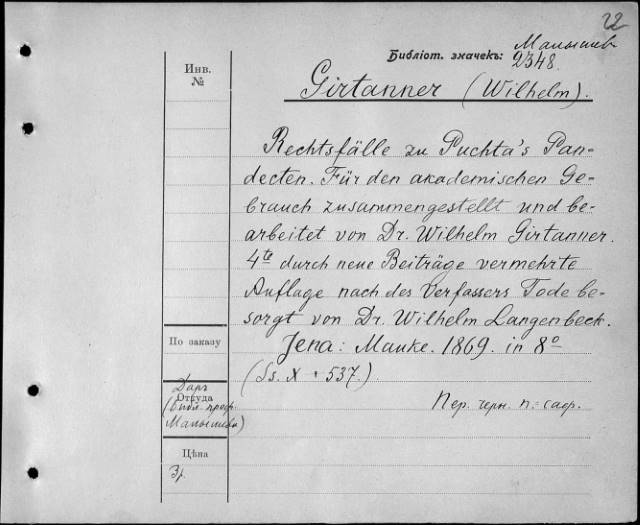 22
Библіот. значекъ: Малышев
2348.
Инв.
№
Girtanner (Wilhelm).
Rechtsfälle zu Puchta's Pan=
decten. Für den akademischen Ge=
brauch zusammengestellt und be=
arbeitet von Dr. Wilhelm Girtanner.
4te durch neue Beiträge vermehrte
Auflage nach des Verfassers Tode be=
sorgt von Dr. Wilhelm Langenbeck.
По заказу
Jena: Mauke. 1869. in 8º
(Ss. X + 537.)
Даръ
Откуда
(библ. проф.
Малышева)
Пер. черн. п.=саф.
Цѣна
3р.